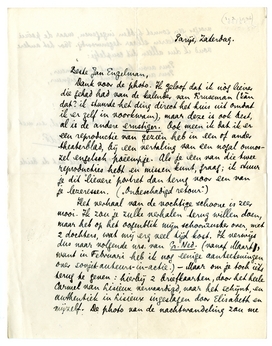 Parijs, Zaterdag.
Beste Jan Engelman,
Dank voor de photo. Ik geloof dat ik nog liever
die gehad had van de kalender van Bruneman (van
dat? ik stuurde het ding direct het huis uit omdat
ik er zelf in voorkwam), maar deze is ook best,
al is de andere ernstiger. Ook meen ik dat ik er
een reproductie van gezien heb in een of ander
theaterblad, bij een vertaling van een nogal onnoo-
zel engelsch poëempje. Als je een van die twee
reproducties hebt en missen kunt, graag; ik stuur
je dit "lievere" portret dan terug voor een van
je lezeressen. (Onbeschadigd retour!)
Het verhaal van de vochtige schoone is zeer
mooi. Ik zou je zulke verhalen terug willen doen,
maar het op het oogenblik mijn schoonzuster, met
2 dochters, wat mij erg veel tijd kost. Ik verwijs
dus naar volgende nrs. van Gr. Ned. (vanaf Maart,
want in Februari heb ik nog eenige aanteekeningen
over sovjet-auteurs-in-actie.) — Maar om je toch iets
terug te geven: hierbij 2 briefkaarten, door het heele
Carmel van Lisieux vervaardigd, naar het schijnt, en
authentiek in Lisieux ingeslagen door Elisabeth en
mijzelf. De photo van de nachtwandeling zou me